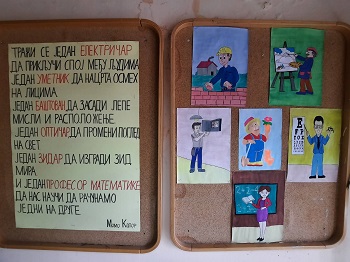 ТРАЖИ СЕ ЈЕДАН ЕЛЕКТРИЧАР
ДА ПРИКЉУЧИ СПОЈ МЕЂУ ЉУДИМА
ЈЕДАН УМЕТНИК ДА НАЦРТА ОСМЕХ
НА ЛИЦИМА
ЈЕДАН БАШТОВАН ДА ЗАСАДИ ЛЕПЕ
МИСЛИ И РАСПОЛОЖЕЊЕ.
ЈЕДАН ОПТИЧАР ДА ПРОМЕНИ ПОГЛЕД
НА СВЕТ
ЈЕДАН ЗИДАР ДА ИЗГРАДИ ЗИД
МИРА
И ЈЕДАН ПРОФЕСОР МАТЕМАТИКЕ
ДА НАС НАУЧИ ДА РАЧУНАМО
ЈЕДНИ НА ДРУГЕ.
Момо Капор